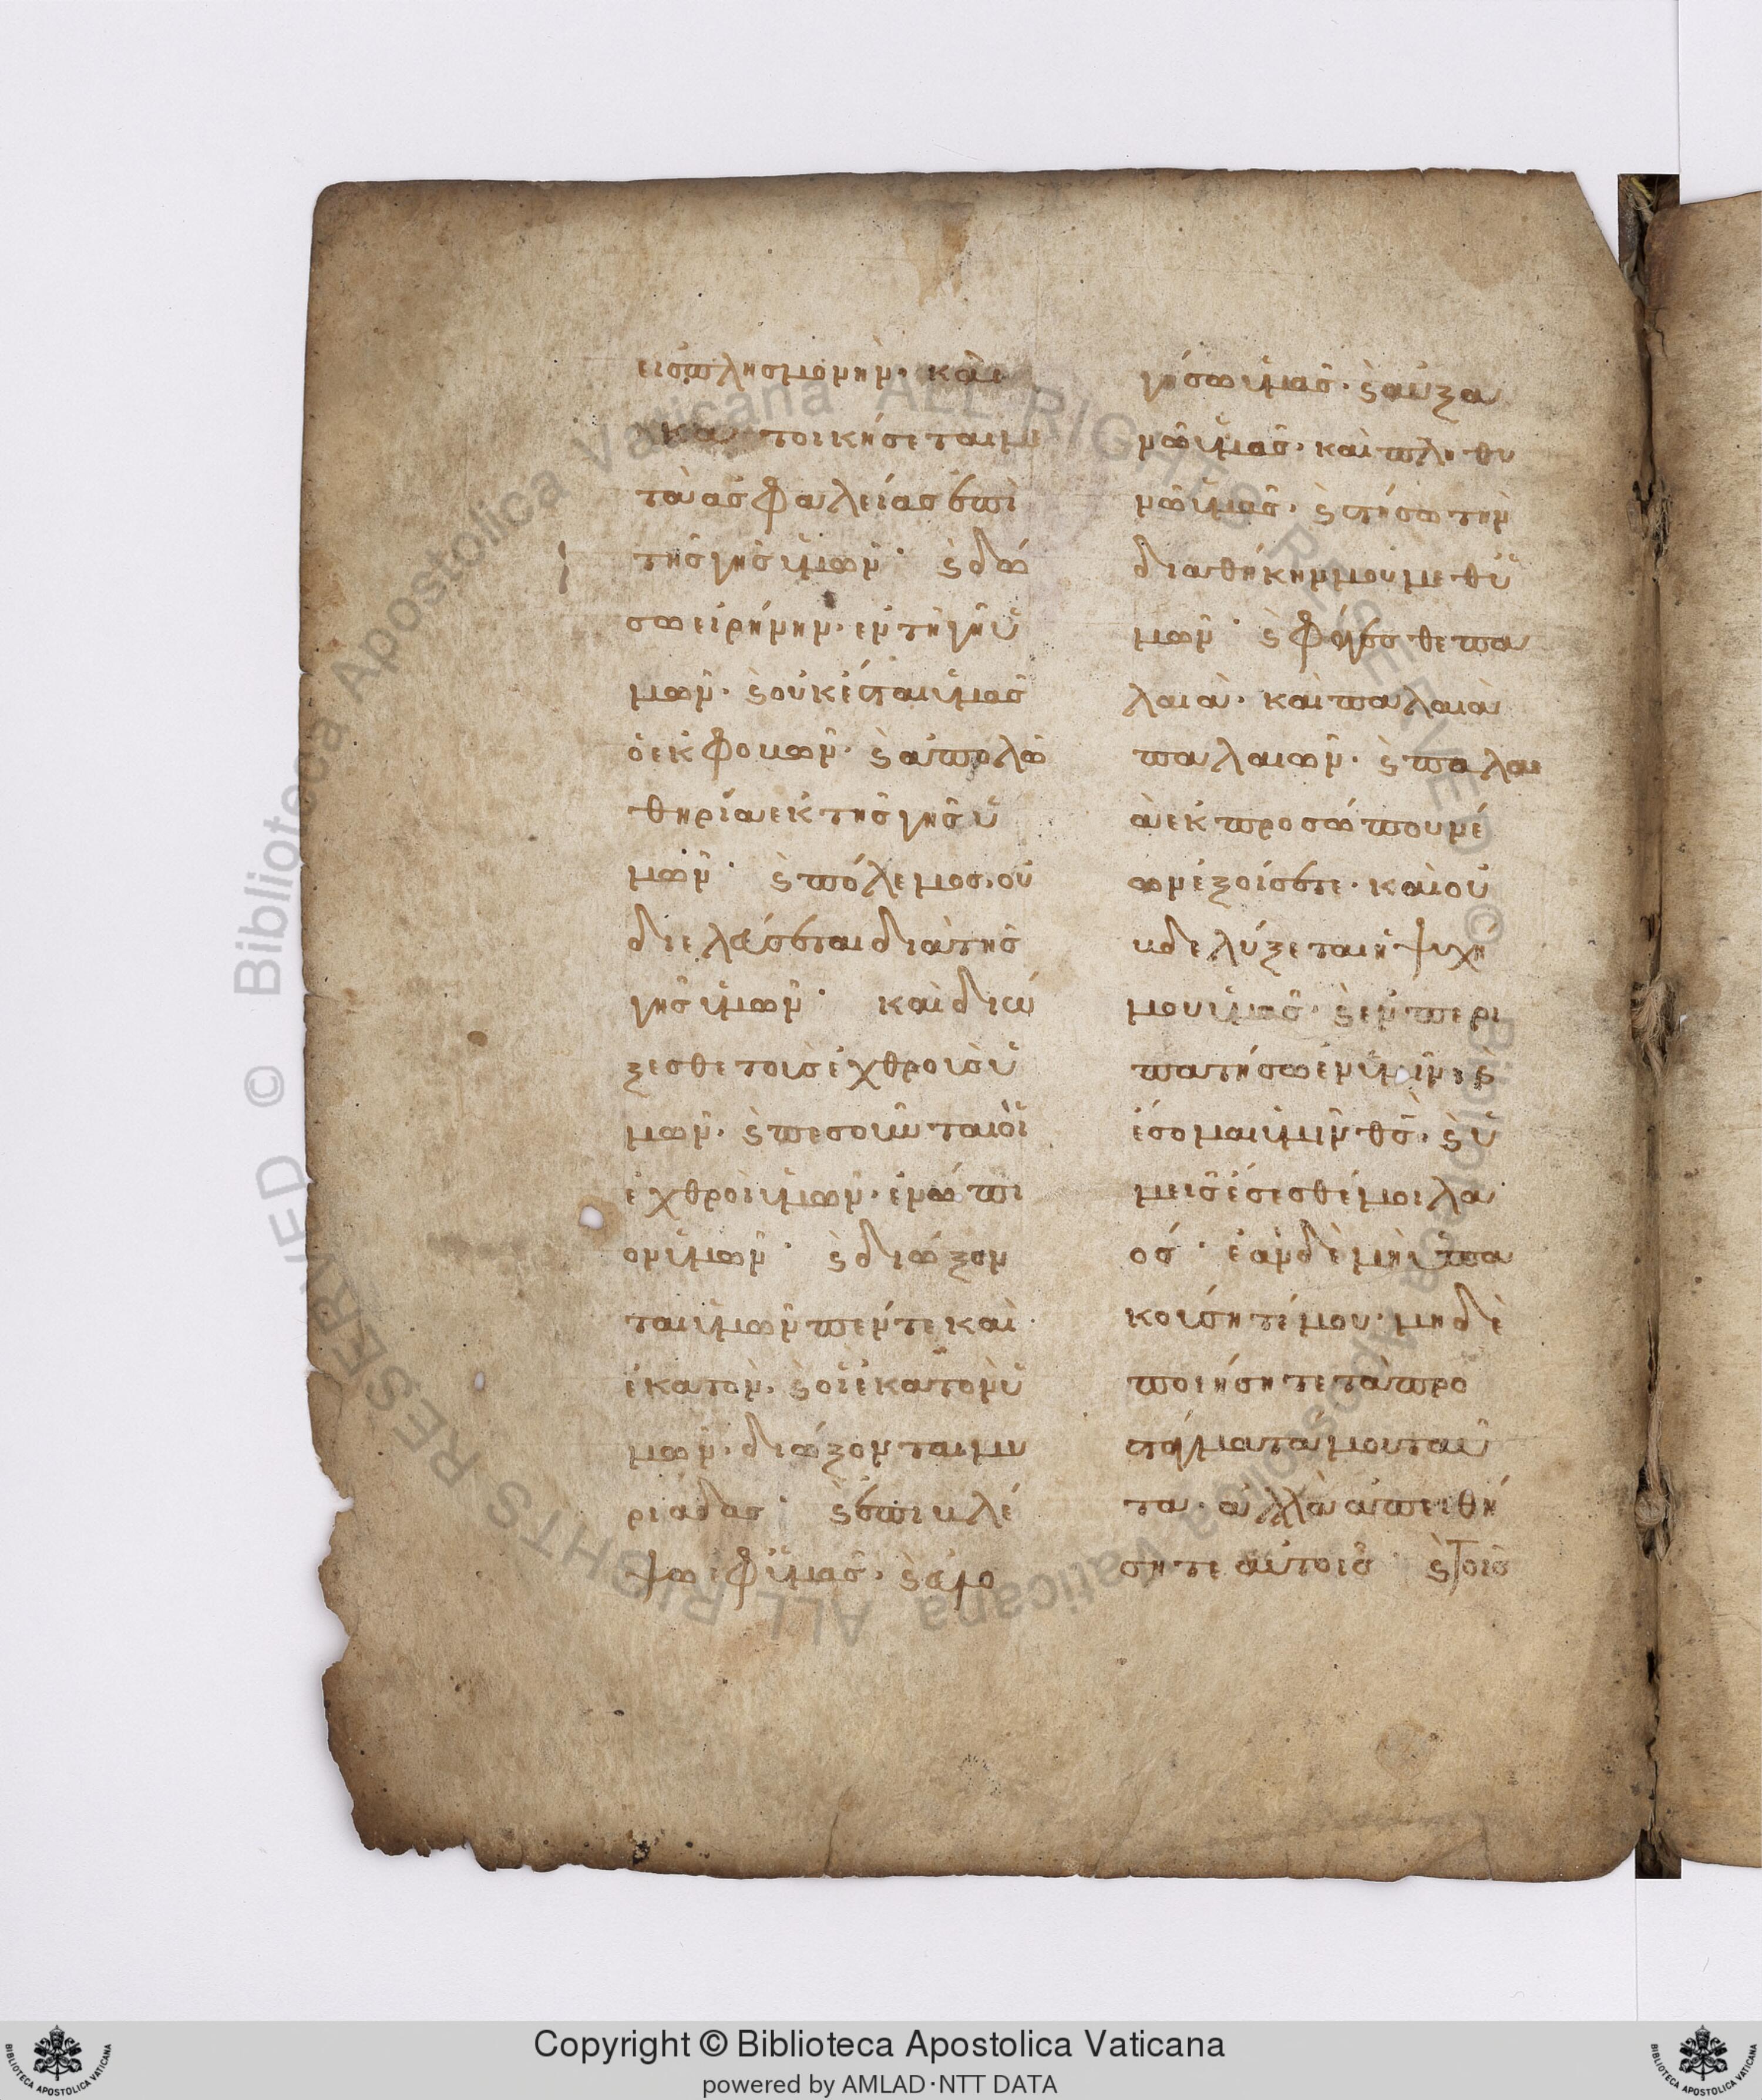 εἰς πλησμονὴν· καὶ
κατοικήσεται με
τὰ ἀσφαλείας ἐπὶ
τῆς γῆς ὑμῶν· ϛ δώ
σω εἰρήνην· ἐν τῇ γῇ ὑ
μῶν· ϛ οὐκ ἔσται ὑμᾶς
ὁ ἐκφοβῶν· ϛ ἀπολῶ
θηρία ἐκ τῆς γῆς ὑ
μῶν· ϛ πόλεμος, οὐ
διελεύσεται διὰ τῆς
γῆς ὑμῶν· καὶ διώ
ξεσθε τοὺς ἐχθροὺς ὑ
μῶν· ϛ πεσοῦνται οἱ
ἐχθροὶ ὑμῶν· ἐνώπι
ον ὑμῶν· ϛ διώξον
ται ὑμῶν πέντε καὶ
ἑκατόν· ϛ οἱ ἑκατὸν ὑ
μῶν· διώξονται μυ
ριάδας· ϛ ἐπιβλέ
ψω ἐφ ὑμᾶς· ϛ αὐ
γήσω ὑμᾶς· ϛ αὐξα
νῶ ὑμᾶς· καὶ πληθυ
νῶ ὑμᾶς· ϛ στήσω τὴν
διαθήκην μου μεθ ὑ
μῶν· ϛ φάγεσθε πα
λαιὰ· καὶ παλαιὰ
παλαιῶν· ϛ παλαι
ὰ ἐκ προσώπου νέ
ων ἐξοίσετε· καὶ οὐ
βδελύξεται ἡ ψυχή
μου ὑμᾶς· ϛ ἐνπερι
πατήσω ἐν ὑμῖν· ϛ
ἔσομαι ὑμῖν θς· ϛ ὑ
μεῖς ἔσεσθέ μοι λα
ός· ἐὰν δὲ μὴ ὑπα
κούσητέ μου· μηδὲ
ποιήσητε τὰ προ
στάγματά μου ταῦ
τα· ἀλλὰ ἀπειθή
σητε αὐτοῖς· ϛ τοῖς